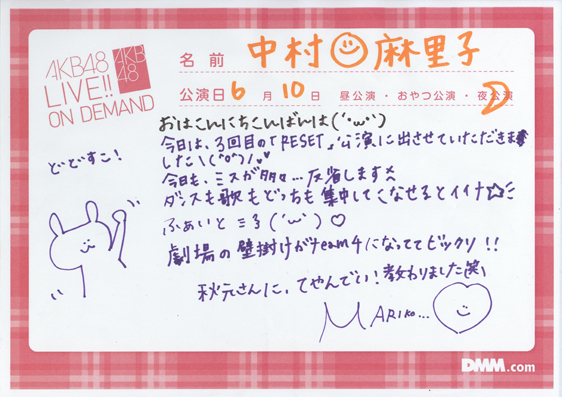 AKB48
LIVE!!
ON DEMAND
AKB
48
名前 中村 麻里子
公演日 6月10日 昼公演・おやつ公演・夜公演
おはこんにちこんばんは(´・ω・`)
今日は、3回目の「RESET」公演に出させていただきま
した\(^o^)/
今日も、ミスが多々...反省します
ダンスも歌もどっちも集中してこなせるとイイナ☆彡
ふぁいとミる(´ω`)♡
劇場の壁掛けがteam4になっててビックリ!!
秋元さんに、てやんでい!教わりました(笑)
MARIKO...
どどすこ!
DMM.com